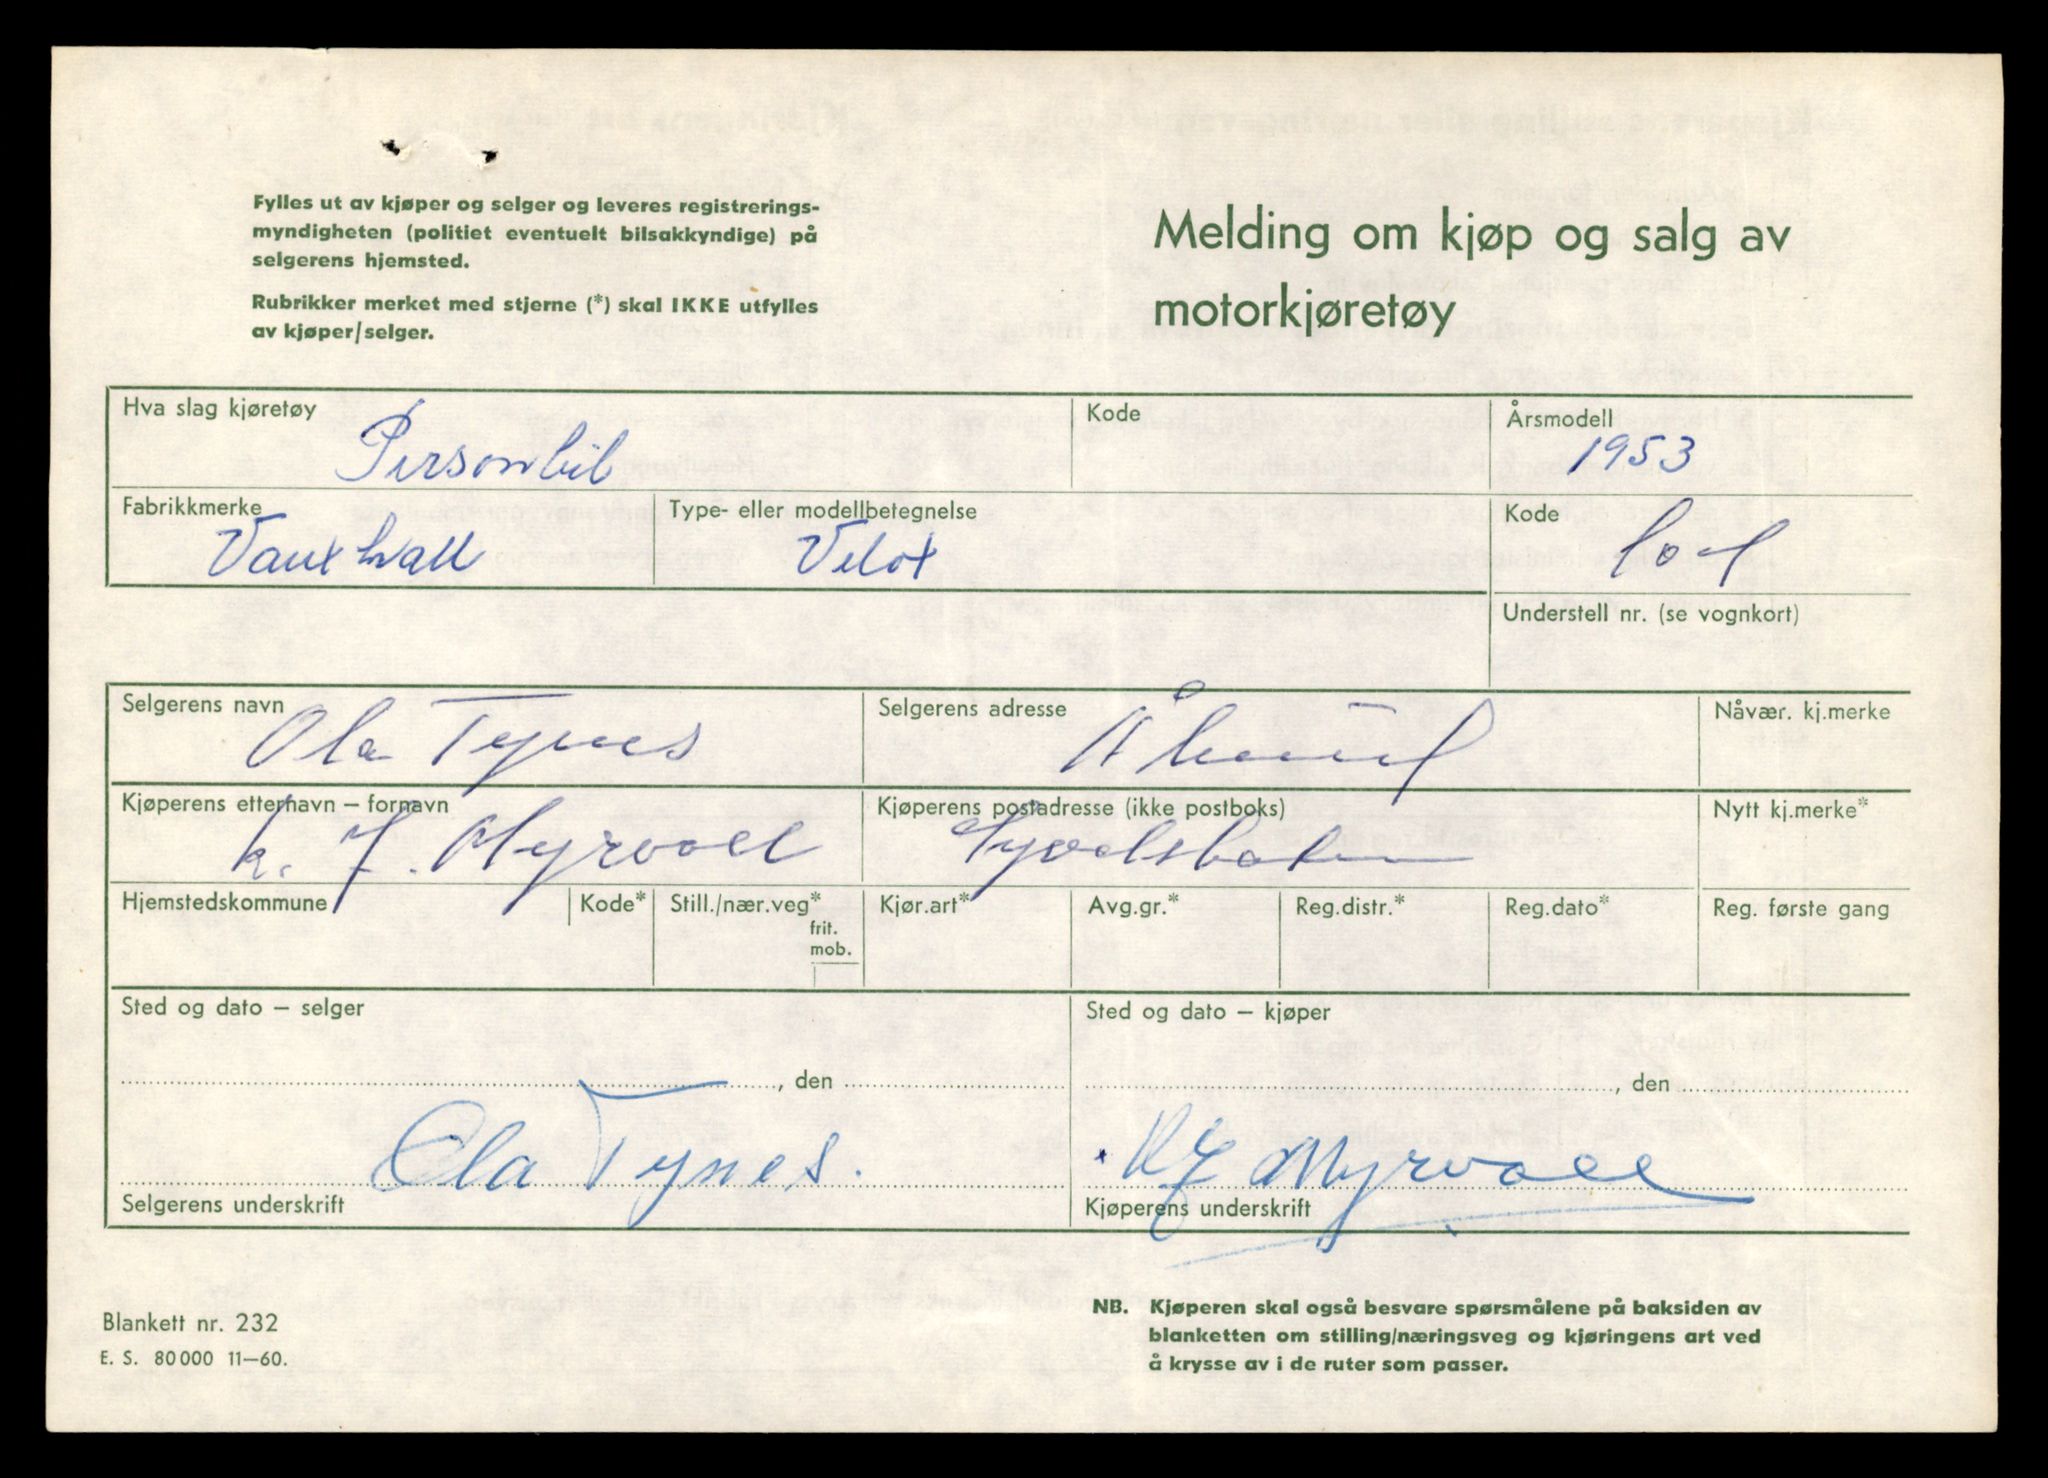 Fylles ut av kjøper og selger og leveres registrerings-
myndigheten (politiet eventuelt bilsakkyndige) på
selgerens hjemsted.
Rubrikker merket med stjerne (*) skal IKKE utfylles
av kjøper/selger.
Melding om kjøp og salg av
motorkjøretøy
Hva slag kjøretøy
Personbil
Kode
Årsmodell
1953
Fabrikkmerke
Vauxhall
Type- eller modellbetegnelse
Velox
Kode
Understell nr. (se vognkort)
Selgerens navn
Ola Tynes
Selgerens adresse
Nåvær. kj.merke
Kjøperens etternavn – fornavn
K. J. Myrvoll
Kjøperens postadresse (ikke postboks)
Nytt kj.merke*
Hjemstedskommune
Kode*
Still./nær.veg*
frit.
mob.
Kjør.art*
Avg.gr.*
Reg.distr.*
Reg.dato*
Reg. første gang
Sted og dato – selger
, den
Ola Tynes.
Selgerens underskrift
Sted og dato – kjøper
, den
KJ Myrvoll
Kjøperens underskrift
Blankett nr. 232
E. S. 80000 11–60.
NB. Kjøperen skal også besvare spørsmålene på baksiden av
blanketten om stilling/næringsveg og kjøringens art ved
å krysse av i de ruter som passer.